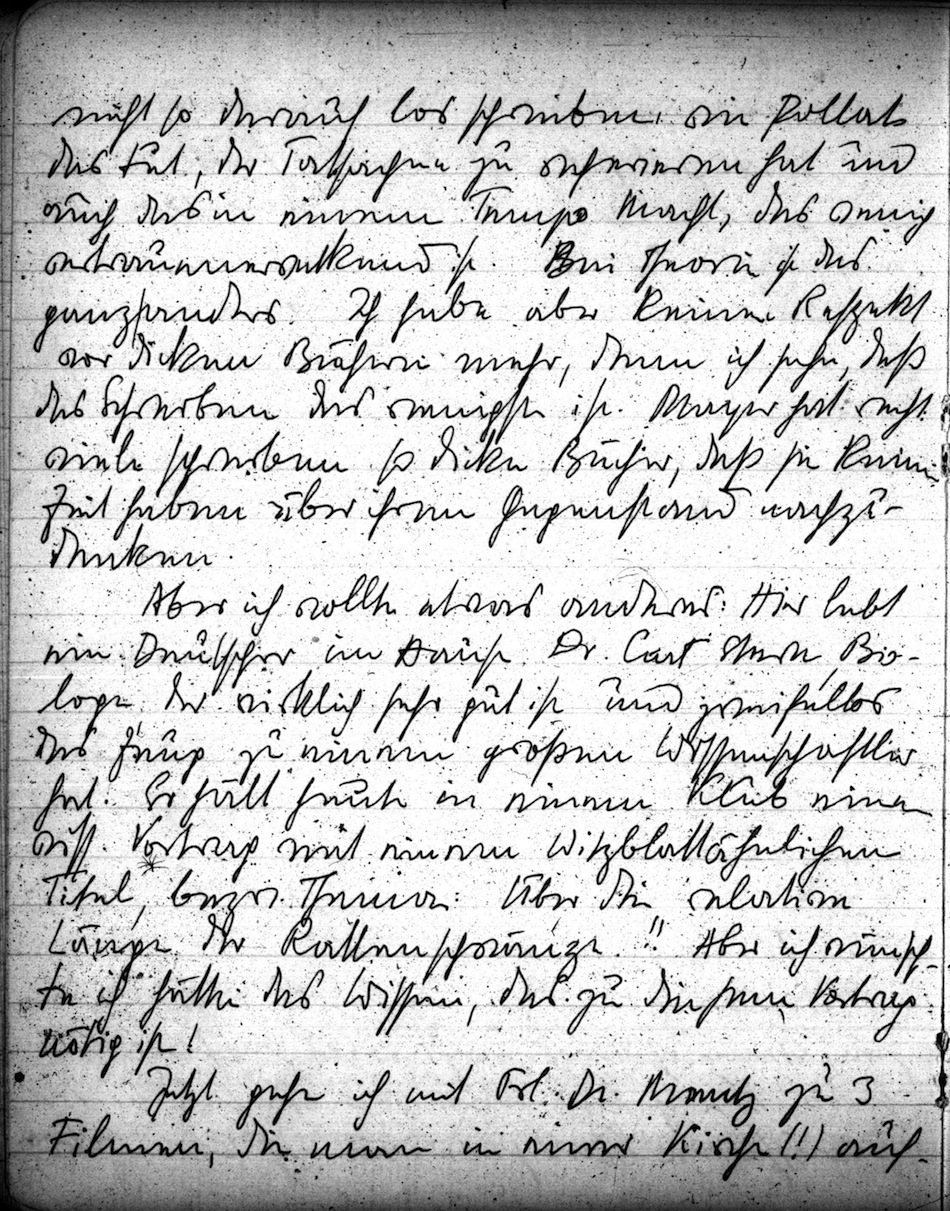 nicht so darauf los schreiben. ein Pollak
das tut, der Tatsachen zu referieren hat und
auch das in einem Tempo macht, das wenig
vertrauenerweckend ist. Bei Theorie ist das
ganz anders. Ich habe aber keinen Respekt
vor dicken Büchern mehr, denn ich sehe, daß
das Schreiben das wenigste ist. Mayer hat recht
viele schreiben so dicke Bücher, daß sie keine
Zeit haben über ihren Gegenstand nachzu-
denken.
Aber ich wollte etwas anderes: Hier lebt
ein Deutscher im Hause Dr. Curt Stern Bio-
loge der wirklich sehr gut ist und zweifellos
das Zeug zu einem großen Wissenschaftler
hat. Er hält heute in einem Klub einen
wiss. Vortrag mit einem Witzblattähnlichen
Titel, bezw. Thema: Über die relative
Länge der Rattenschwänze"! Aber ich wünsch-
te ich hätte das Wissen, das zu diesem Vortrag
nötig ist!
Jetzt gehe ich mit Frl. Dr. zu 3
Filmen, die man in einer Kirche (!) auf-